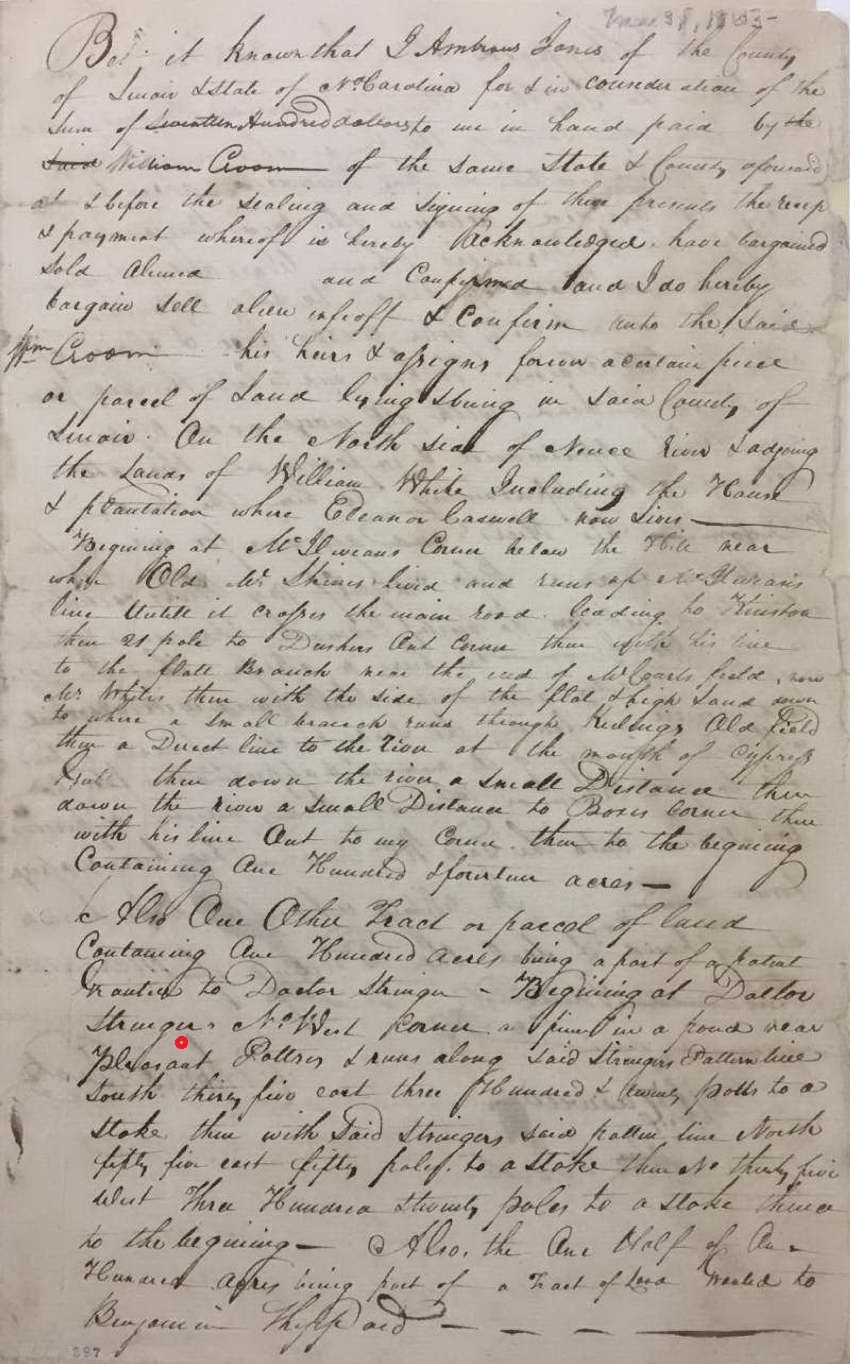 Be it known that I Ambrous Jones of the County
of Lenoir & State of No Carolina for & in consideration of the
Sum of Seventeen Hundred dollars to me in hand paid by the
said William Croom of the same State & County aforesaid
at & before the sealing and signing of these presents the recep
& payment whereof is hereby Acknowledged have bargained
sold aliened and Confirmed and I do hereby
bargain sell alien infeoff & Confirm unto the said
Wm Croom his heirs & assigns forever a certain piece
or parcel of Land lying & being in said County of
Lenoir. On the North side of Neuce River & adjoing
the Lands of William White Including the House
& plantation where Eleanor Caswell now Lives
Begining at McIlweans Corner below the Hill near
where Old Mr Shines lived and runs up McIlweans
line Untill it crosses the main road leading to Kinston
then 21 pole to Dushers Out Corner then with his line
to the flatt Branch near the end of field, now
Mr Whites then with the side of the flat & high Land down
to where a small branch runs through Old field
then a Direct line to the river at the mouth of Cypress
then down the river a small Distance then
down the river a small Distance to Corner then
with his line Out to my Corner then to the begining
Containing One Hundred & fourteen acres
Also One Other Tract or parcel of land
Containing One Hundred acres being a part of a patent
Granted to Doctor Stringer - Begining at Doctor
Stringers No West Corner a pine in a pond near
Pleasant & runs along said Stringers Pattern line
South thirty five east three Hundred & twenty polls to a
stake then with said Stringers said pattin line North
fifty five east fifty poles to a stake then No thirty five
West Three Hundred & twenty poles to a stake thence
to the begining - Also, the One Half of One
Hundred acres being part of a Tract of Land Granted to
Benjamin Sheppard
297